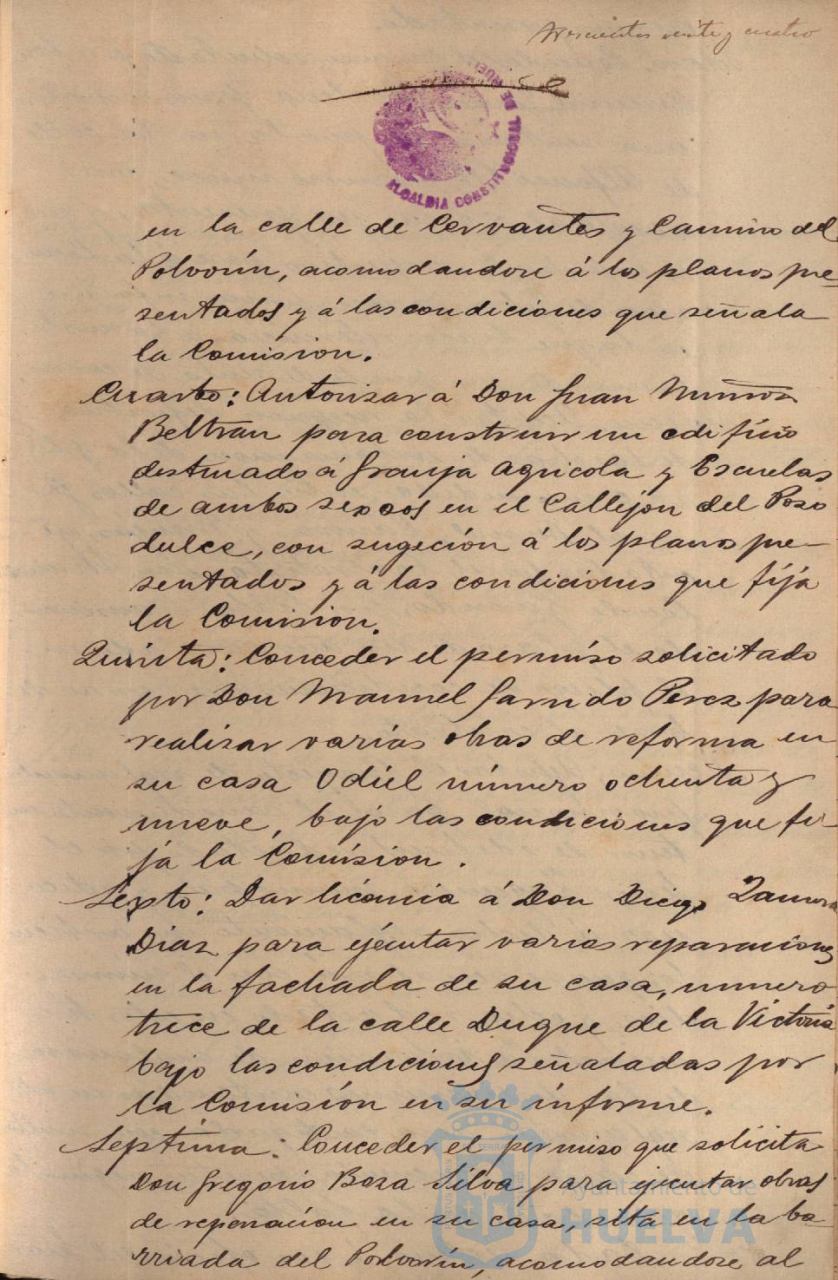 Trescientos veinte y cuatro
ALCALDIA CONSTITUCIONAL DE HUEL
en la calle de Cervantes y Camino del
Polvorin, acomodandose á los planos pre-
sentados y á las condiciones que señala
la Comision.
Cuarto: Autorizar á Don Juan Muñoz
Beltran para construir un edificio
destinado á Granja Agricola y Escuelas
de ambos sexsos en el Callejon del Poso
dulce, con sugeción á los planos pre-
sentados y á las condiciones que fija
la Comision.
Quinta: Conceder el permiso solicitado
por Don Manuel Garrido Perez para
realisar varias obras de reforma en
su casa Odiel número ochenta y
nueve, bajo las condiciones que fi-
ja la Comision.
Sexto: Dar licencia á Don Diego Zamora
Diaz para ejecutar varias reparaciones
en la fachada de su casa, numero
trece de la calle Duque de la Victoria
bajo las condiciones señaladas por
la Comisión en su informe.
Septima: Conceder el permiso que solicita
Don Gregorio Boza Silva para ejecutar obras
de reparacion en su casa, sita en la ba-
rriada del Polvorin, acomodandose al
Ayuntamiento de
HUELVA